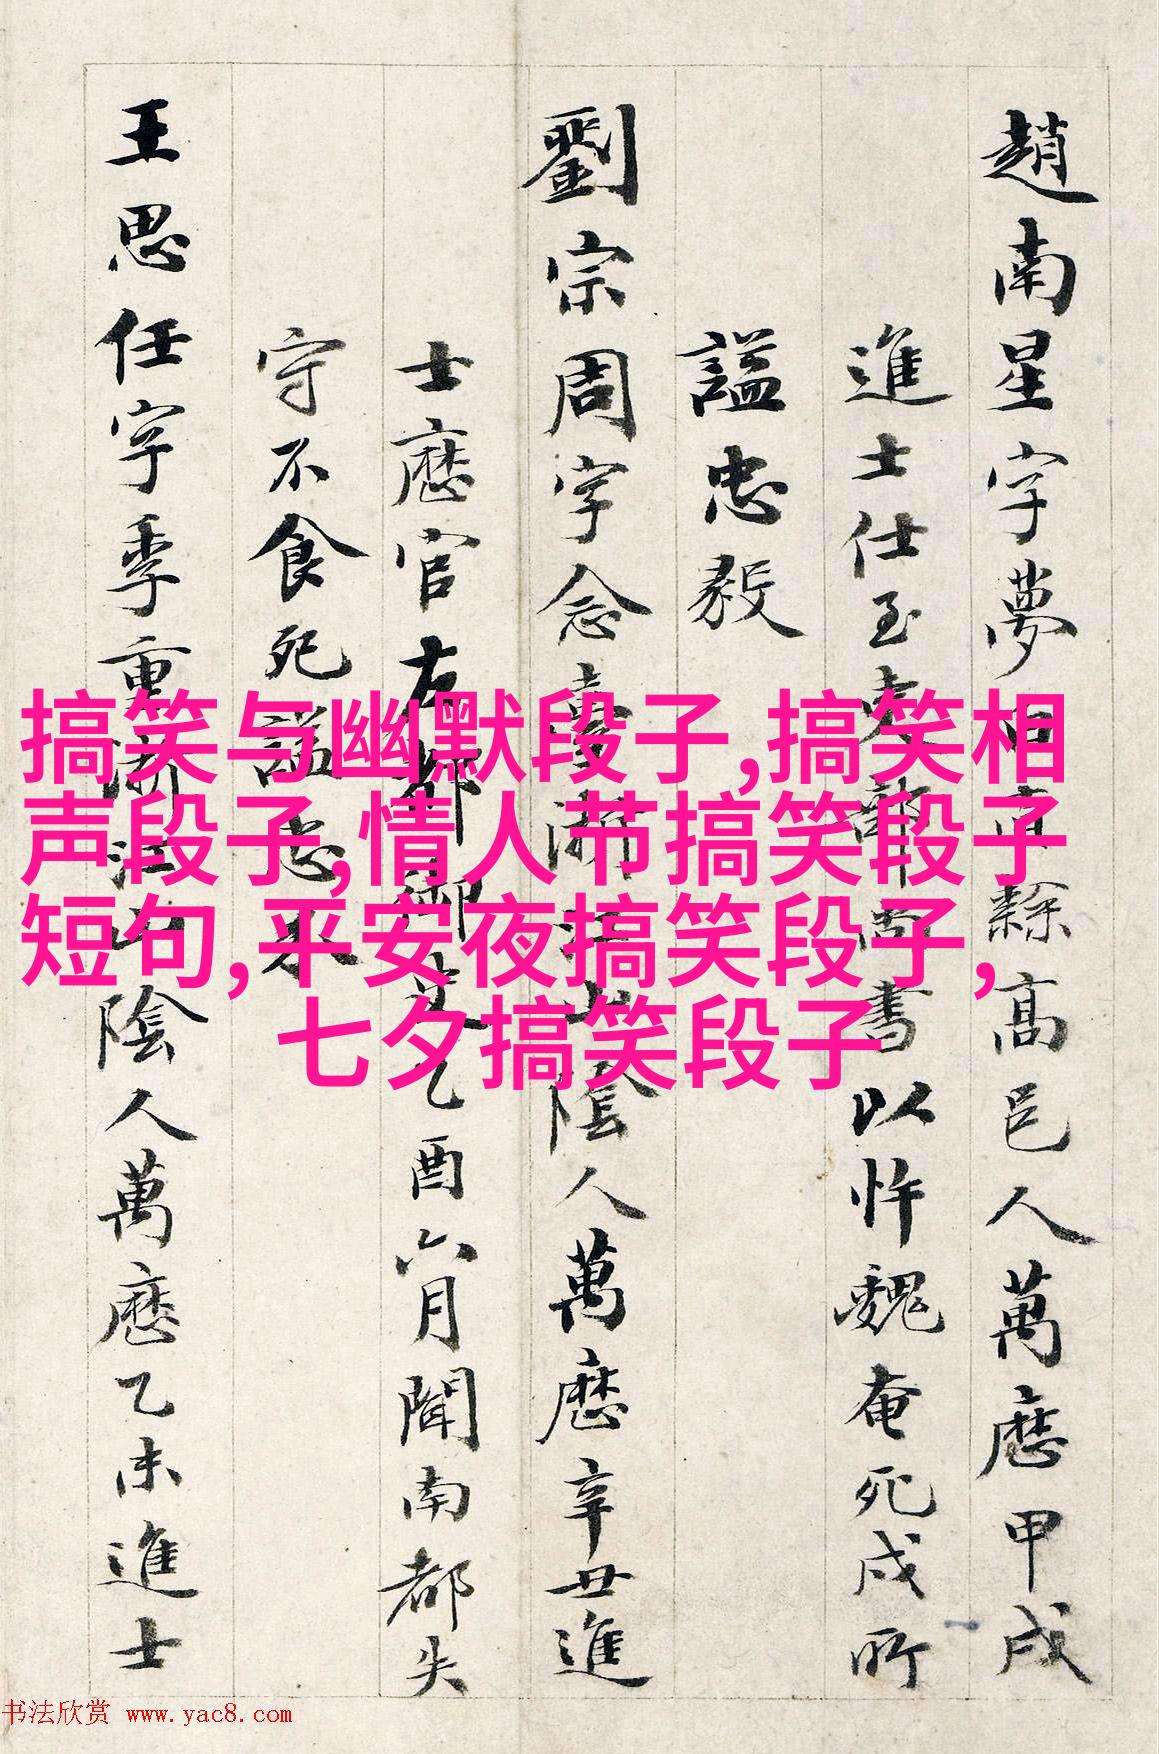 趙南星字夢白直隸高邑人萬曆甲戌
進士仕至吏部尚書以忤魏奄死戍所
諡忠毅
劉宗周字念臺浙江山陰人萬曆辛丑進
士歷官左都御史乙酉六月聞南都失
守不食死諡忠
王思任字季重浙江山陰人萬曆乙未進士
搞笑与幽默段子,搞笑相
声段子,情人节搞笑段子
短句,平安夜搞笑段子,
七夕搞笑段子
书法欣赏 www.yac8.com